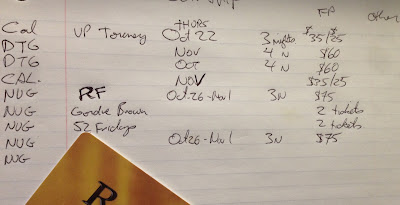 THURS FP Other
Cal VP Tourney Oct 22 3 nights $35/$25
DTG Nov 4 N $60
DTG Oct 4 N $60
CAL. NOV /25
NUG RF Oct-26-Nov1 3N $75
NUG Gordie Brown 2 tickets
NUG 52 Fridays 2 tickets
NUG Oct26-Nov1 3N $75
NUG
R